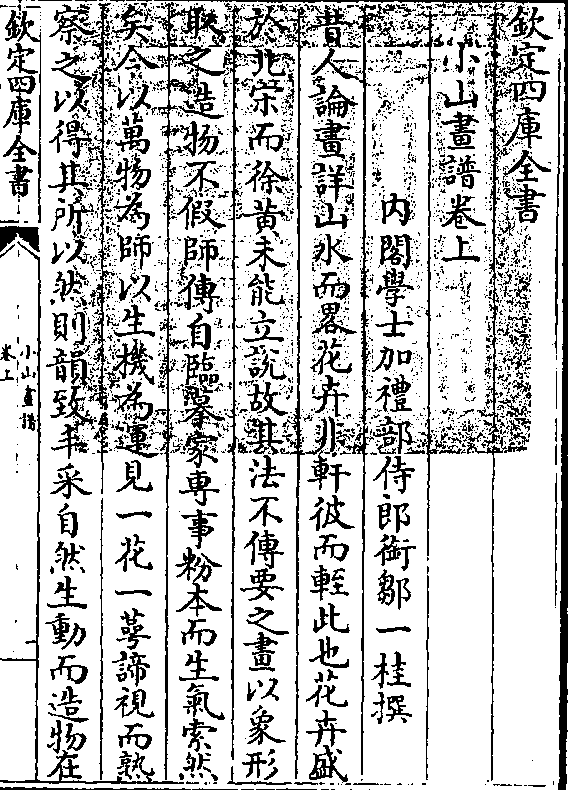 欽定四庫全書
小山畫譜卷上
内閣學士加禮部侍郎銜鄒一桂撰
昔人論畫詳山水而畧花卉非軒彼而輊此也花卉盛
於北宋而徐黃未能立說故其法不傳要之畫以象形
取之造物不假師傳自臨摹家專事粉本而生氣索然
矣今以萬物為師以生機為運見一花一萼諦視而熟
察之以得其所以然則韻致丰采自然生動而造物在
欽定四庫全書
小山畫譜
卷上
一